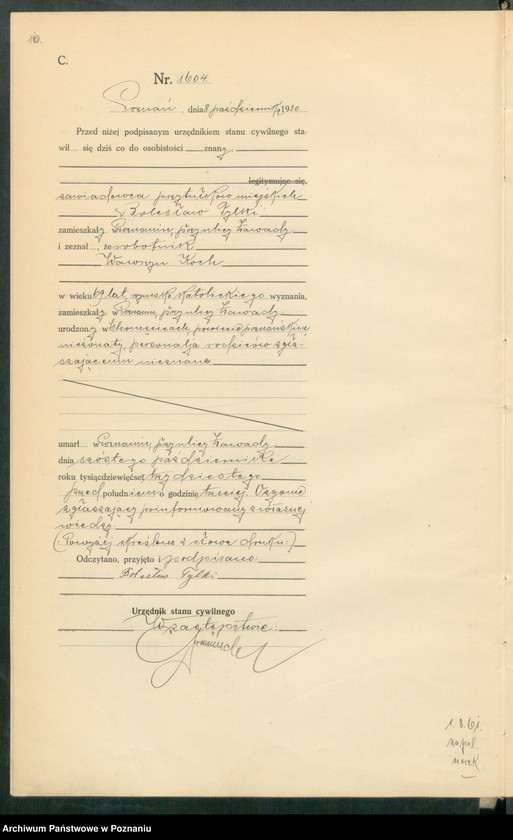 10.
C.
Nr. 1604
Poznań, dnia 8 października 1930
Przed niżej podpisanym urzędnikiem stanu cywilnego sta-
wił się dziś co do osobistości znany
legitymując się
zawiadowca przytułków miejskich
Bolesław Tylki
zamieszkały w Poznaniu, przy ulicy Zawady
i zeznał, że robotnik
Wawrzyn Koch
w wieku 69 lat, rzymsko katolickiego wyznania,
zamieszkały w Poznaniu, przy ulicy Zawady
urodzony w powiecie poznańskim
nieżonaty, personalja rodziców zgła-
szającemu nieznane
umarł w Poznaniu, przy ulicy Zawady
dnia szóstego października
roku tysiącdziewięćset trzydziestego
przed południem o godzinie trzeciej. O zgonie
zgłaszający poinformowany z własnej
wiedzy.
(Powyżej skreślono 2 słowa druku:)
Odczytano, przyjęto i podpisano:
Bolesław Tylki
Urzędnik stanu cywilnego
W zastępstwie:
1.8.61.
Archiwum Państwowe w Poznaniu